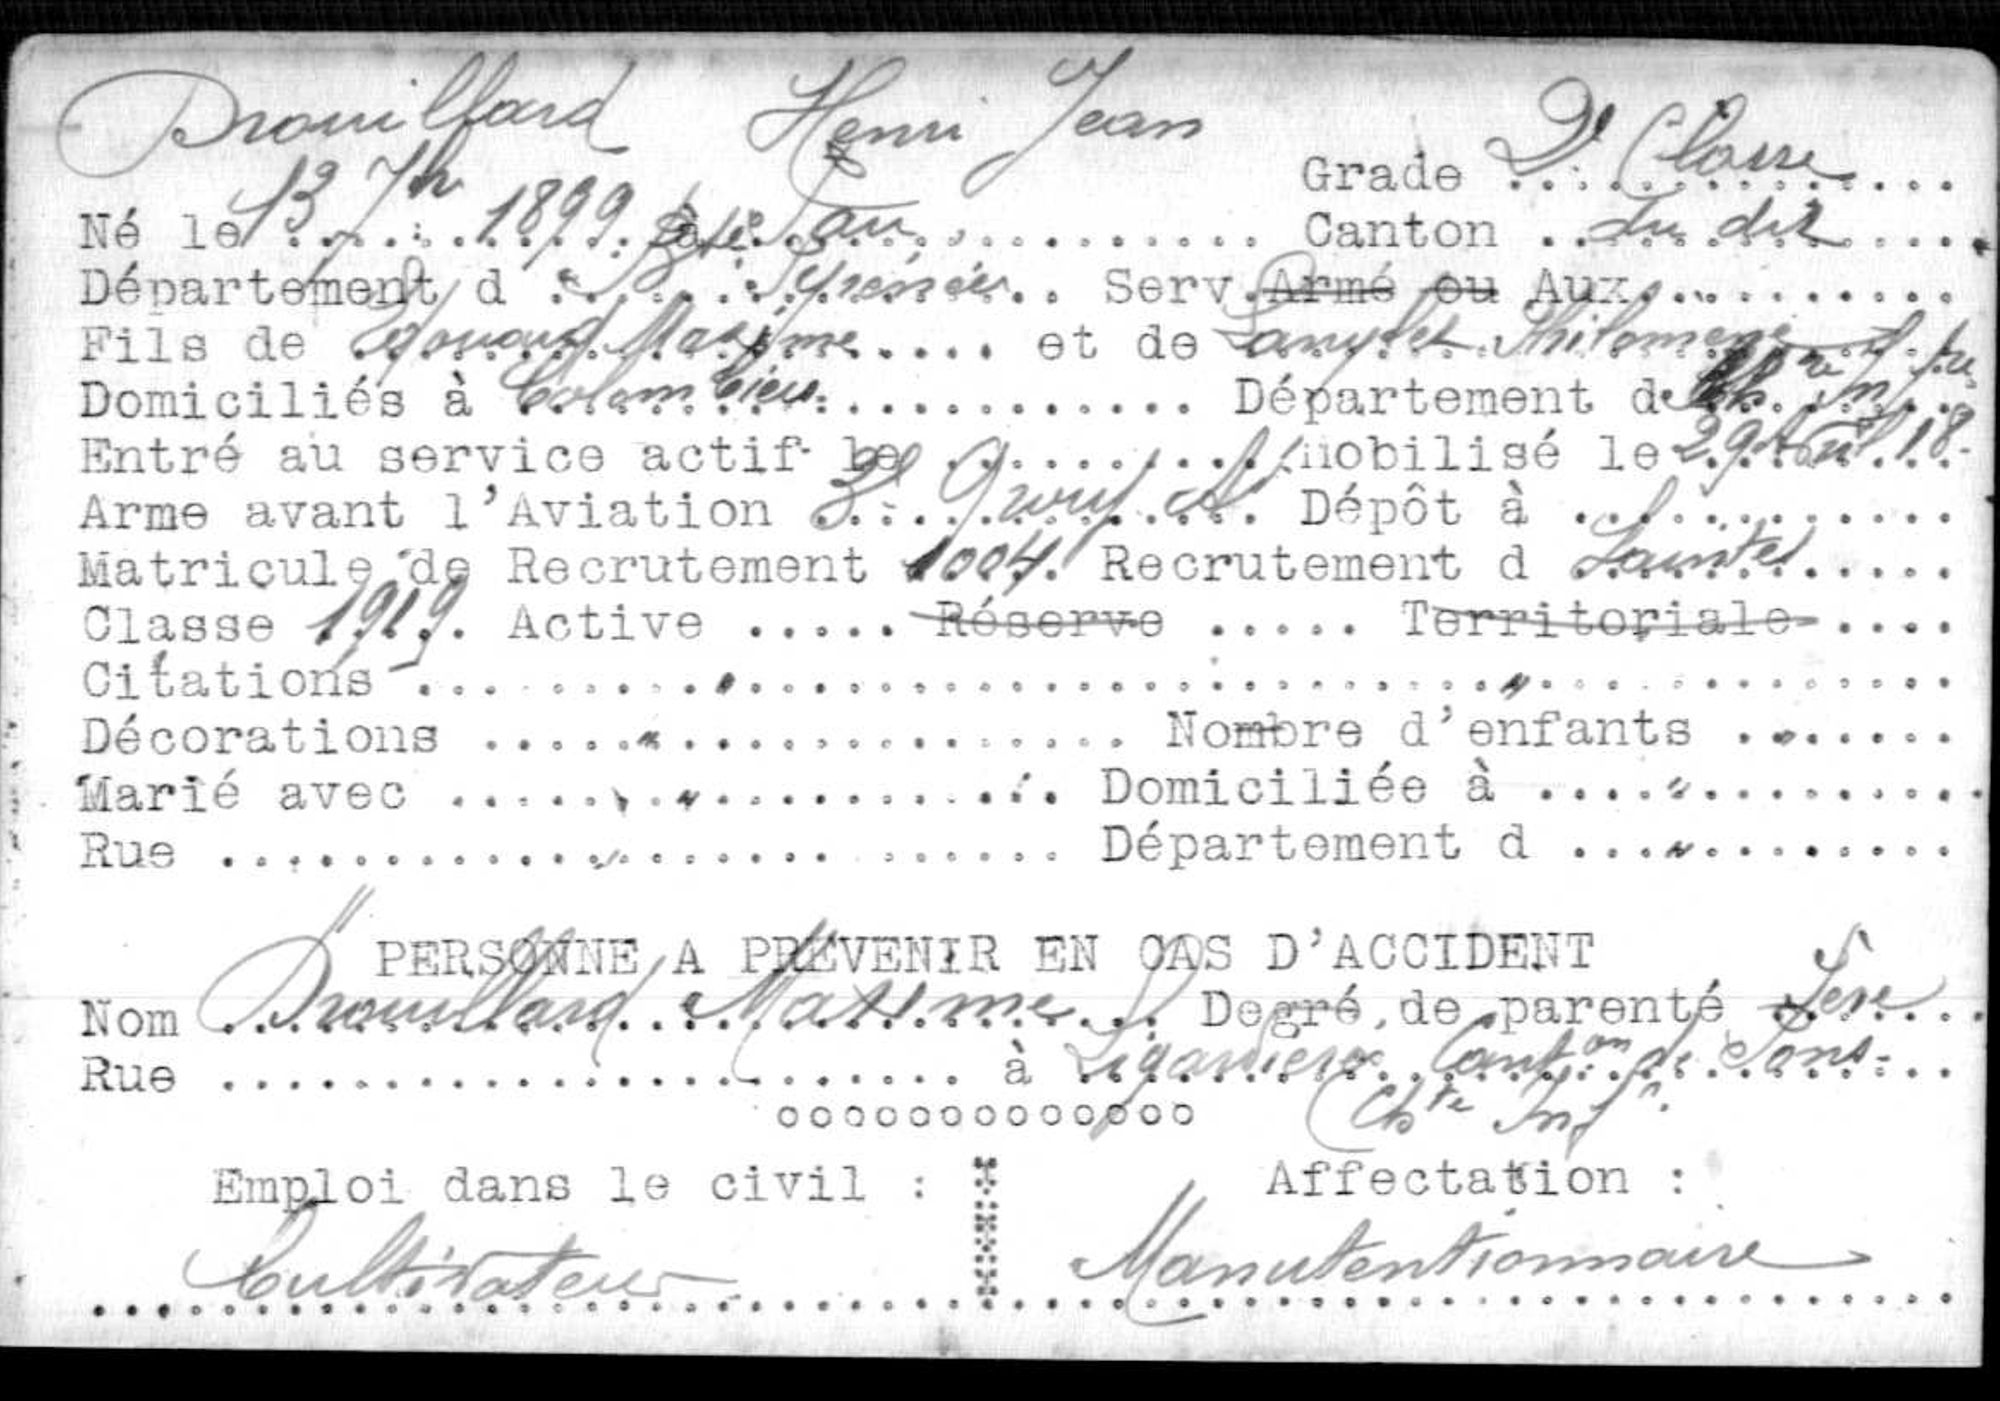 Drouillard Henri Jean
Grade 2e Classe
Né le 13 7bre 1899 à Pau Canton du dit
Département d B. Pyrénées Serv. Armé ou Aux.
Fils de Edouard Maxime et de Philomene
Domiciliés à Colombiers Département d Chte Infre
Entré au service actif le mobilisé le 29 Avril 18
Arme avant l'Aviation Dépôt à
Matricule de Recrutement 1004 Recrutement d Saintes
Classe 1919. Active ..... Réserve ..... Territoriale ....
Citations "  "
Décorations " Nombre d'enfants "
Marié avec " Domiciliée à "
Rue " Département d "
PERSONNE A PREVENIR EN CAS D'ACCIDENT
Nom Drouillard Maxime Degré de parenté Père
Rue à Canton de Pons
ooooooooooooo Chte Infre
Emploi dans le civil : Affectation :
Cultivateur Manutentionnaire